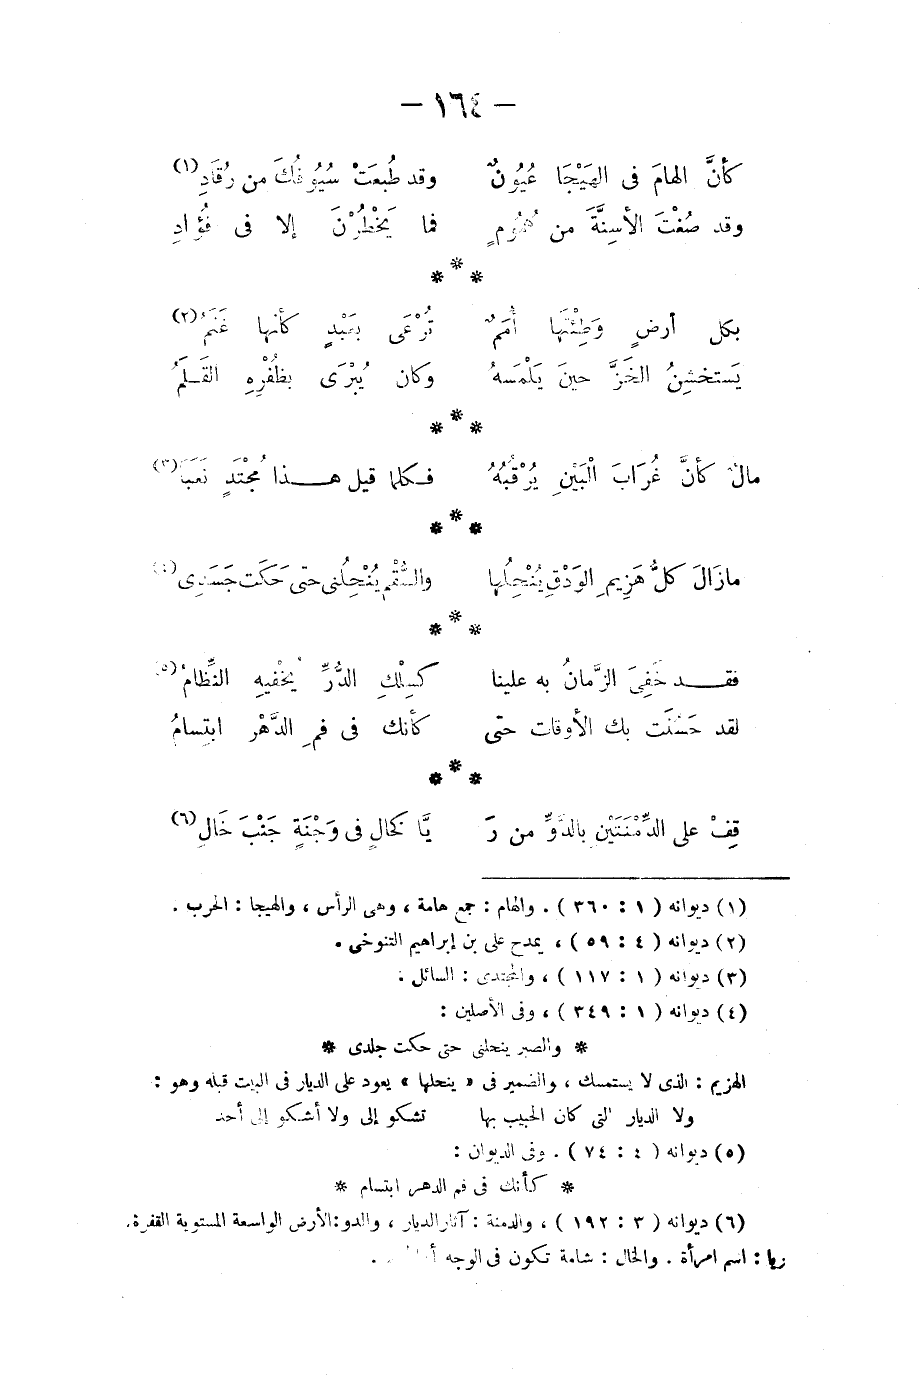 — ١٦٤ —
كأنَّ الهامَ فى الهَيْجَا عُيُونٌ وقد طُبعَتْ سُيُوفُكَ من رُقَادِ (١)
وقد صُغْتَ الأسِنَّةَ من هُمُومٍ فما يَخْطُرْنَ إلا فى فُؤَادِ
* * *
بكل أرضٍ وَطِئْتُها أُمَمٌ تُرْعَى بعَبْدٍ كأنها غَنَمُ (٢)
يَستخشِنُ الخَزَّ حينَ يَلْمَسهُ وكان يُبْرَى بظُفْرِهِ القَلَمُ
* * *
مالٌ كأنَّ غُرَابَ الْبَيْنِ يَرْقُبُهُ فكلما قيل هذا مُجْتَدٍ نَعَبَا (٣)
* * *
مازَالَ كلُّ هَزِيمِ الوَدْقِ يُنْحِلُها والسُّقْم يُنْحِلُنى حتى حَكَت جَسَدِى (٤)
* * *
فقد خَفِىَ الزَّمانُ به علينا كسِلْكِ الدُّرِّ يُخْفيهِ النِّظامُ (٥)
لقد حَسُنَت بك الأوقات حتّى كأنك فى فمِ الدَّهْر ابتِسامُ
* * *
قِفْ على الدِّمْنَتَيْنِ بالدَّوِّ من رَ يَّا كَخالٍ فى وَجْنَةٍ جَنْبَ خَالِ (٦)
(١) ديوانه ( ١ : ٣٦٠ ) . والهام : جمع هامة ، وهى الرأس ، والهيجا : الحرب .
(٢) ديوانه ( ٤ : ٥٩ ) ، يمدح على بن إبراهيم التنوخى .
(٣) ديوانه ( ١ : ١١٧ ) ، والمجتدى : السائل .
(٤) ديوانه ( ١ : ٣٤٩ ) ، وفى الأصلين :
* والصبر ينحلنى حتى حكت جلدى *
الهزيم : الذى لا يستمسك ، والضمير فى « ينحلها » يعود على الديار فى البيت قبله وهو :
ولا الديار التى كان الحبيب بها تشكو إلى ولا أشكو إلى أحد
(٥) ديوانه ( ٤ : ٧٤ ) . وفى الديوان :
* كأنك فى فم الدهر ابتسام *
(٦) ديوانه ( ٣ : ١٩٢ ) ، والدمنة : آثار الديار ، والدو : الأرض الواسعة المستوية القفرة .
ريا : اسم امرأة . والخال : شامة تكون فى الوجه .